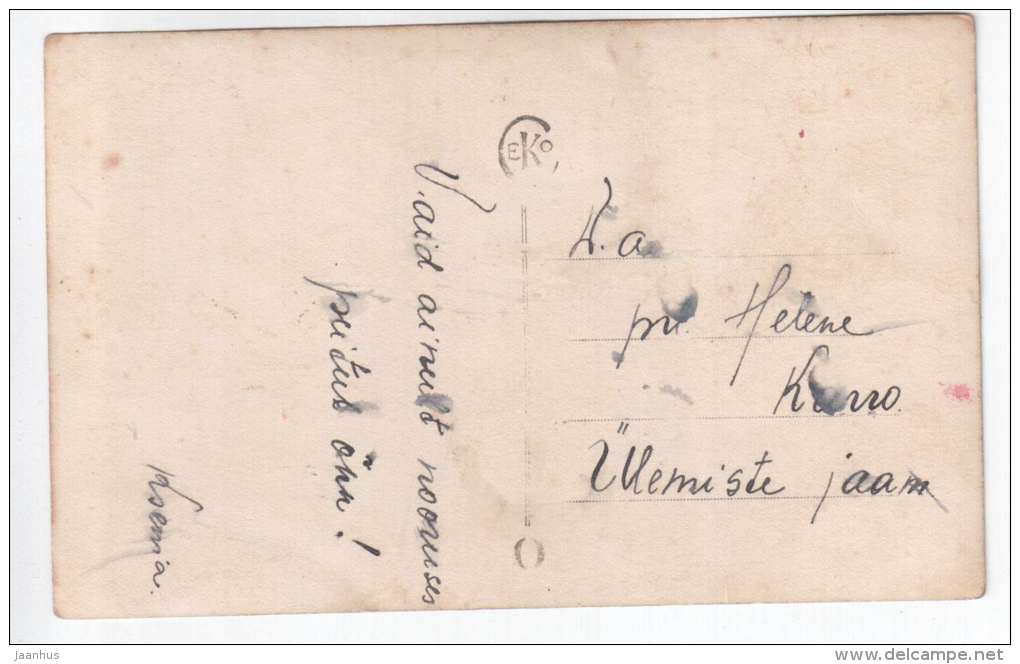 Vaid ainult nooruses
peitub õnn!
Ksenja.
EKO
K.a
pr. Helene
Karro.
Ülemiste jaam
jaanhus
www.delcampe.net